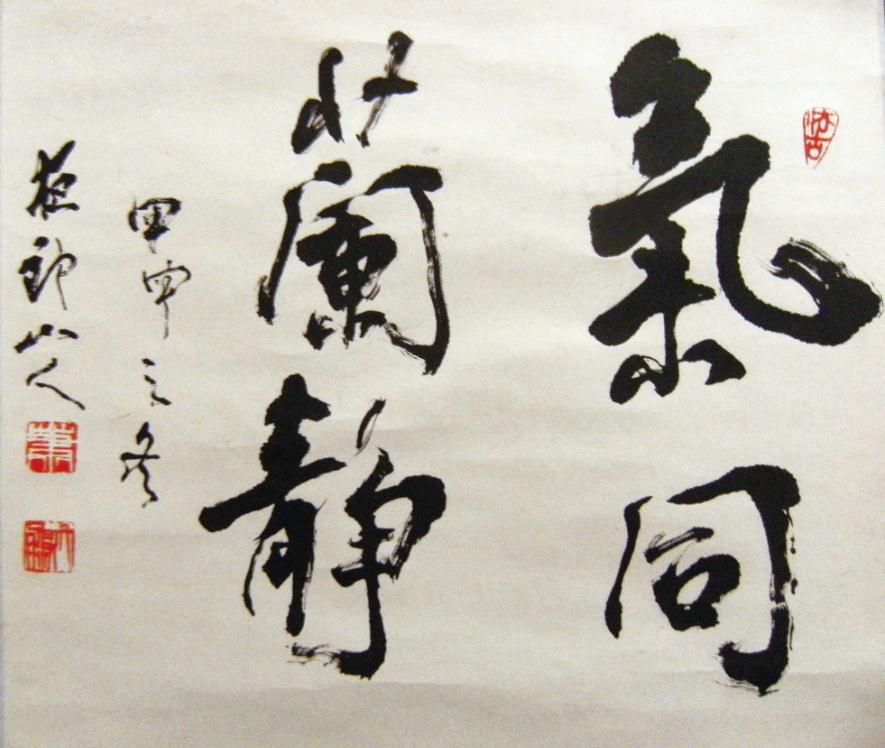 氣同
蘭靜
甲申之冬
夜郎山人